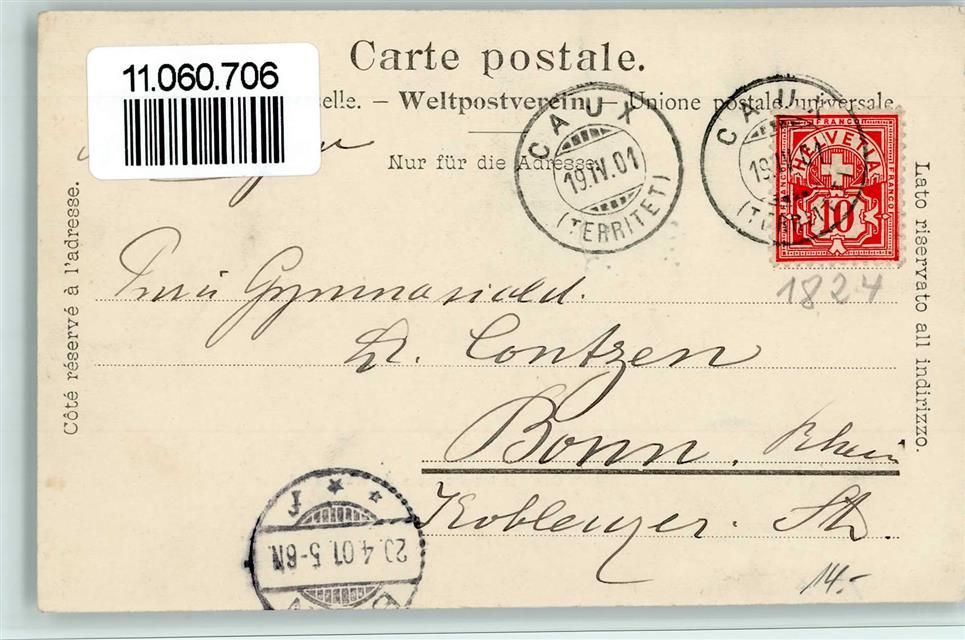 Carte postale.
11.060.706
selle. – Weltpostverein – Unione postale universale.
Nur für die Adresse.
CAUX
19.IV.01
(TERRITET)
CAUX
19.IV.01
FRANCO
HELVETIA
FRANCO
FRANCO
10
1824
Côté réservé à l'adresse.
Lato riservato all indirizzo.
Gymnasiald.
Dr. Contzen
Bonn, Rhein
Koblenzer. Str.
20.4.01.5-6N.
14.-